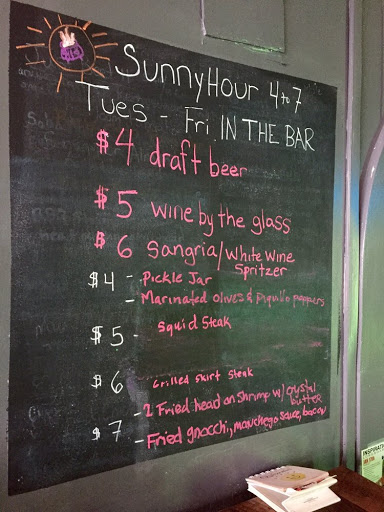 SunnyHour 4 to 7
Tues - Fri IN THE BAR
$4 draft beer
$5 wine by the glass
$6 Sangria/White Wine
Spritzer
$4 - Pickle Jar
- Marinated olives & piquillo peppers
$5 - Squid Steak
$6 Grilled Skirt Steak
- 2 Fried head on Shrimp w/ crystal
butter
$7 - Fried gnocchi, manchego sauce, bacon